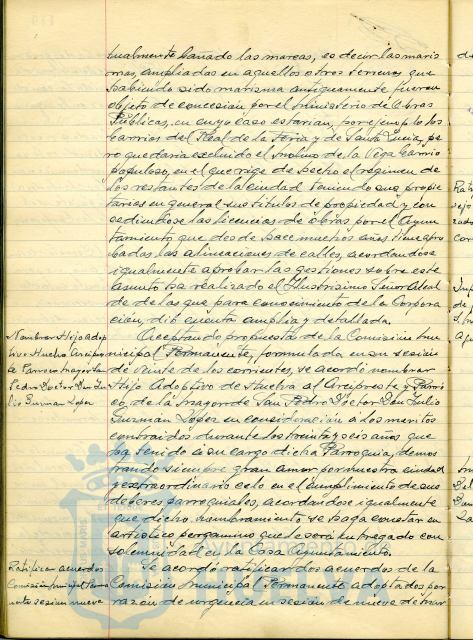 tualmente bañado las mareas, es decir las maris
mas, ampliadas en aquellos otros terrenos que
habiendo sido marisma antiguamente fueron
objeto de concesion por el Ministerio de Obras
Públicas, en cuyo caso estarian, por ejemplo los
barrios del Real de la Feria y de Santa Lucia, pe
ro quedaria excluido el Molino de la Vega barrio
populoso, en el que rige de hecho el régimen de
los restantes de la ciudad teniendo sus propie
tarios en general sus titulos de propiedad y con
cediendose las licencias de obras por el Ayun
tamiento que desde hace muchos años tiene apro
badas las alineaciones de calles, acordandose
igualmente aprobar las gestiones sobre este
asunto ha realizado el Ilustrisimo Señor Alcal
de de las que para conocimiento de la Corpora
ción, dió cuenta amplia y detallada.
Nombrar Hijo Adop
tivo Huelva Arcipreste
Parroco Mayor de
Pedro Doctor Don Ju
lio Guzman Lopez
Aceptando propuesta de la Comisión Mu
nicipal Permanente, formulada en su sesión
de veinte de los corrientes, se acordó nombrar
Hijo Adoptivo de Huelva al Arcipreste y Párro
co, de la Mayor de San Pedro Doctor Don Julio
Guzman Lopez en consideración a los meritos
contraidos durante los treinta y seis años que
ha tenido a su cargo dicha Parroquia, demos
trando siempre gran amor por nuestra ciudad
y extraordinario celo en el cumplimiento de sus
deberes parroquiales, acordandose igualmente
que dicho nombramiento se haga constar en
artistico pergamino que le será entregado con
solemnidad en la Casa Ayuntamiento.
Ratificar acuerdos
Comisión municipal Perma
nente sesion nueve
Se acordó ratificar dos acuerdos de la
Comisión Municipal Permanente adoptados por
razón de urgencia en sesión de nueve de